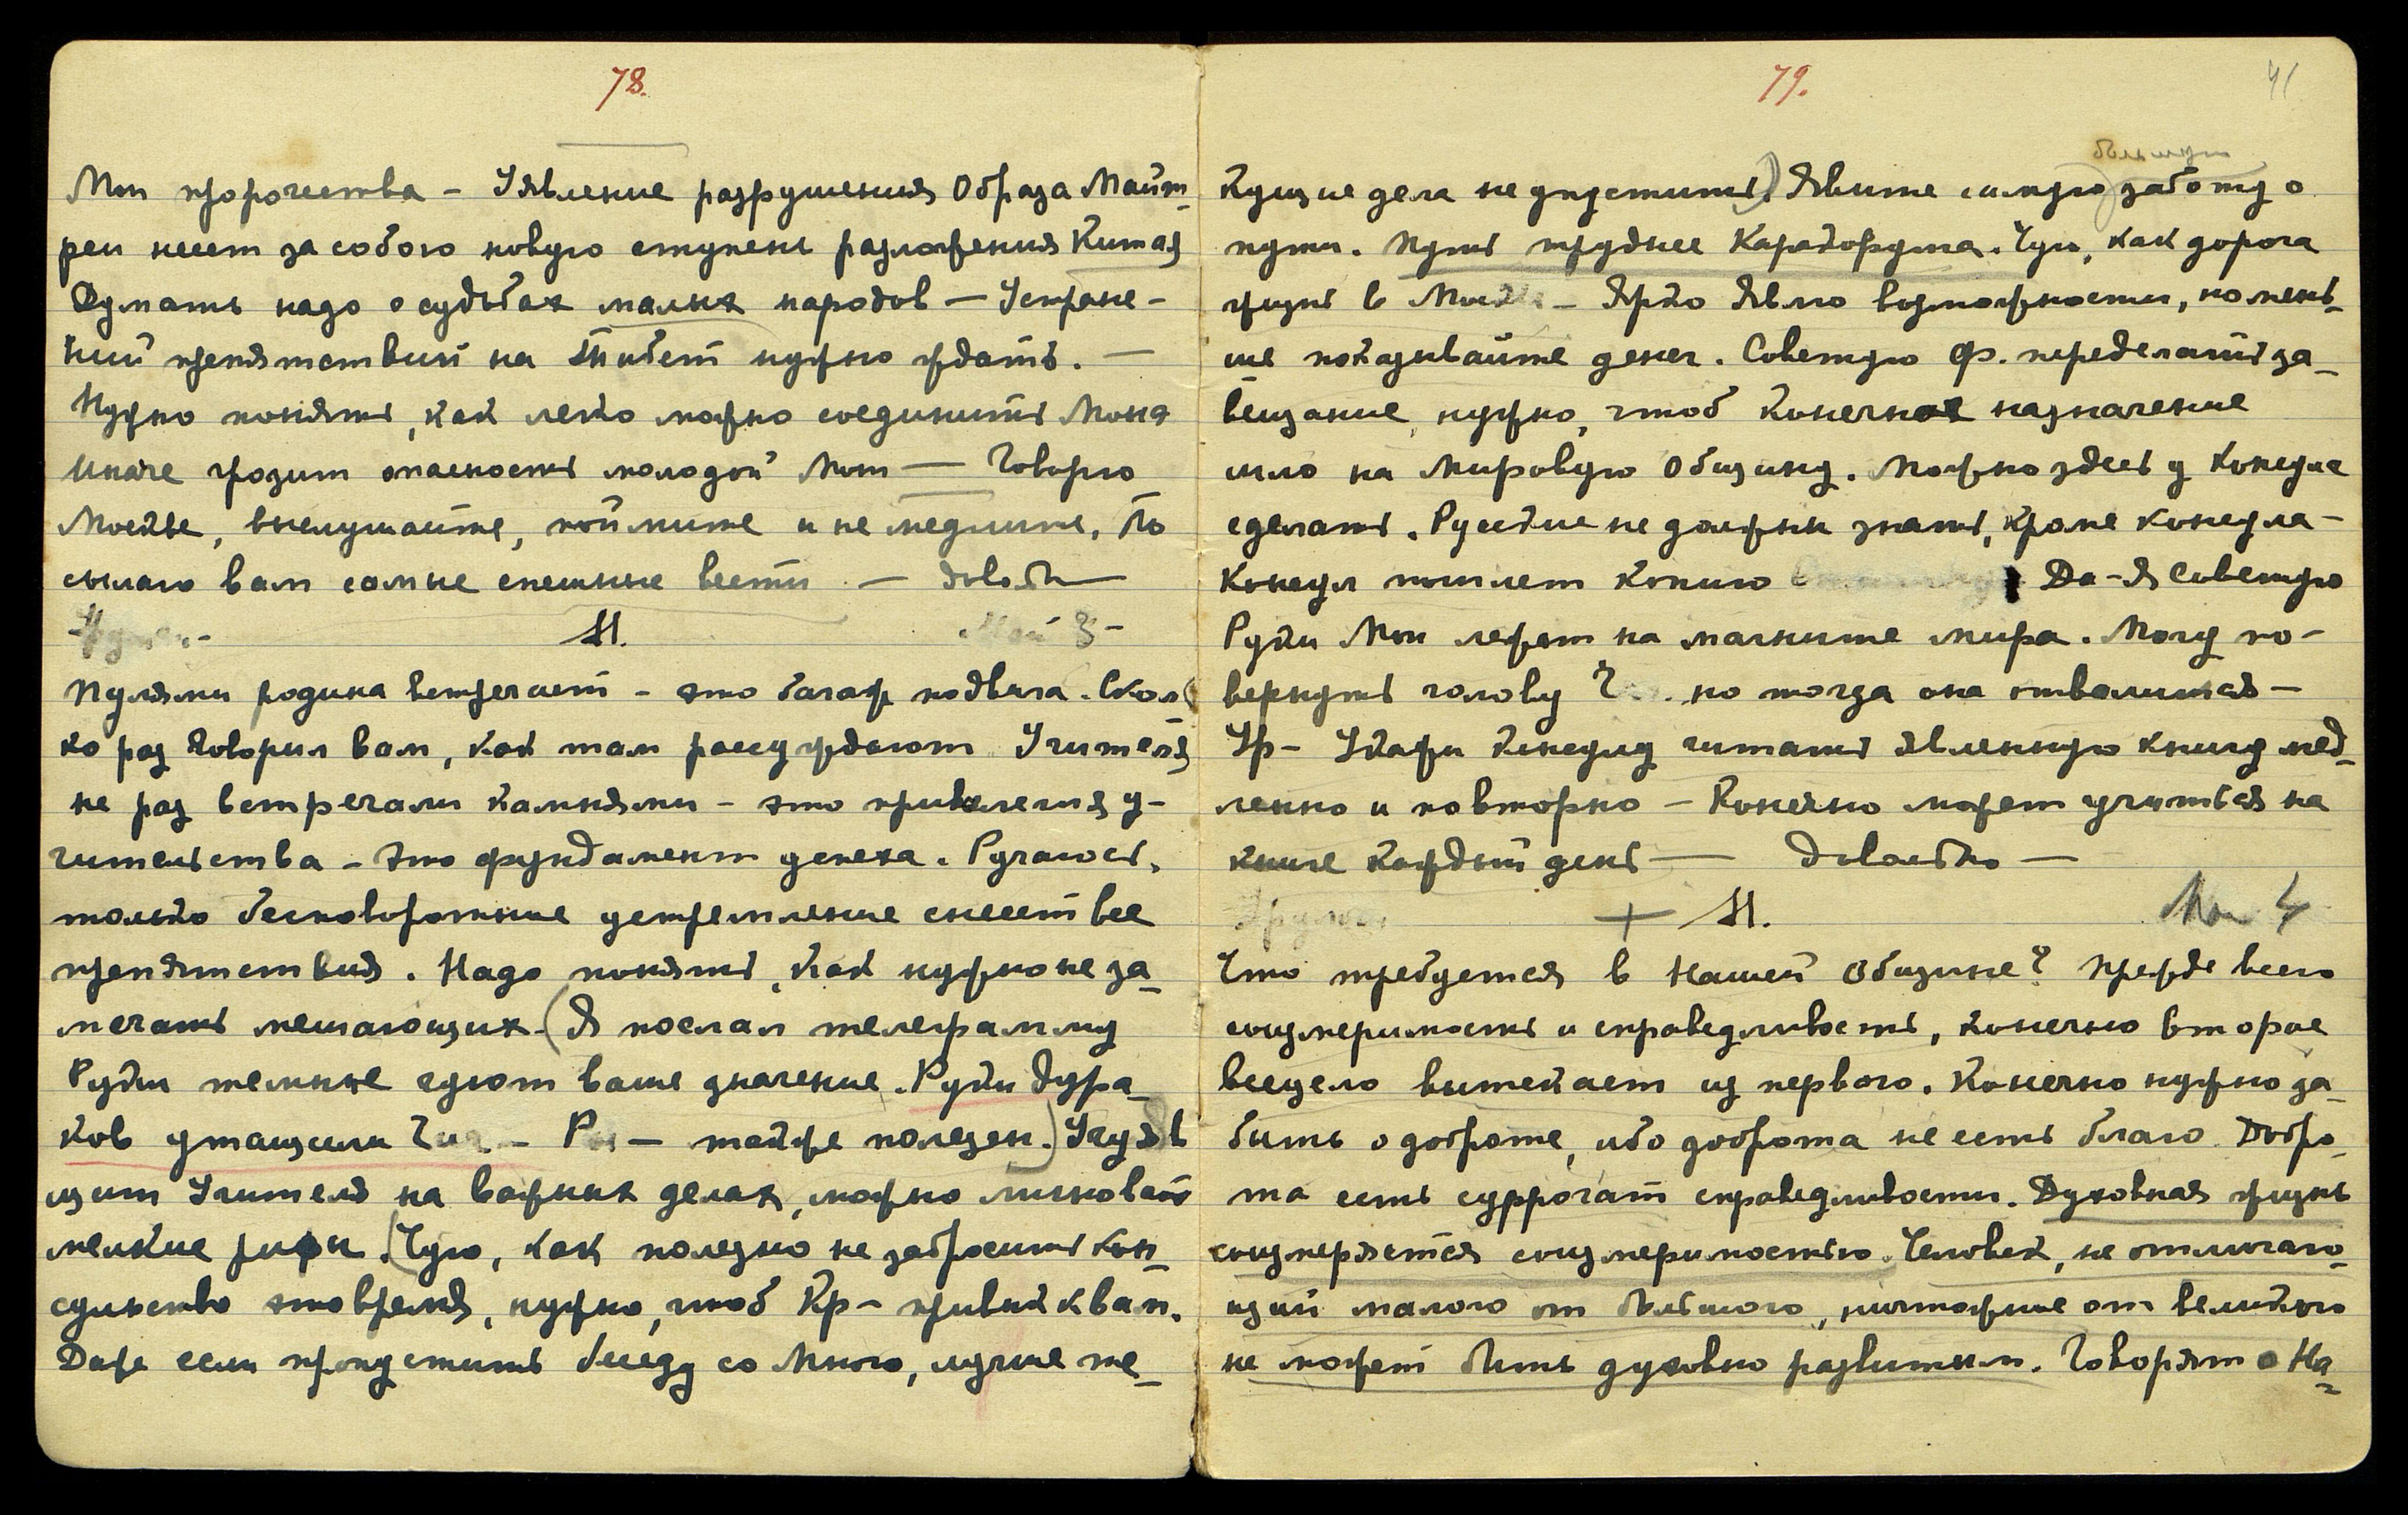 78.
Мои пророчества – Уявление разрушения Образа Майт-
реи несет за собою новую ступень разложения Китая
Думать надо о судьбах малых народов – Устране-
ний препятствий на Тибет нужно ждать. –
Нужно понять, как легко можно соединить Мона
Иначе грозит опасность молодой Мон – Говорю
Москве, выслушайте, поймите и не медлите. По
сылаю вам самые спешные вести – довольн
М. Май 3 –
Пулями родина встречает – это багаж подвига. Сколь
ко раз Говорил вам, как там рассуждают Учителя
не раз встречали камнями – это привилегия у-
чительства – Это фундамент успеха. Ручаюсь,
только бесповоротные устремление снесет все
препятствия. Надо понять, как нужно не за-
мечать мешающих. (Я послал телеграмму
Руки темные чуют ваше значение. Руки дура-
ков утащили Чич – Р – также полезен.) Учуяв
щит Учителя на важных делах, можно миновать
мелкие рифы. (Чую, как полезно не забросить кон-
сульство это время, нужно, чтоб Кр – привык к вам.
Даже если пропустить беседу со Мною, лучше те-
79.
41
кущие дела не упустить). Явите самую заботу о
пути. Путь труднее Каракорума. Чую, как дорога
жизнь в Москве – Ярко Являю возможности, но мень-
ше показывайте денег. Советую Ф. переделать за-
вещание, нужно, чтоб конечное назначение
шло на Мировую Общину. Можно здесь у консула
сделать. Русские не должны знать, кроме консула –
Консул пошлет копию Да – Я Советую
Руки Мои лежат на магните мира. Могу по-
вернуть голову Ч но тогда она отвалится –
Ур – Укажи консулу читать явленную книгу мед-
ленно и повторно – Конечно может учиться на
книге каждый день – довольно –
+ М. Май 4
Что требуется в Нашей Общине? Прежде всего
соизмеримость и справедливость, конечно второе
всецело вытекает из первого. Конечно нужно за-
быть о доброте, ибо доброта не есть благо. Добро-
та есть суррогат справедливости. Духовная жизнь
соизмеряется соизмеримостью. Человек, не отличаю-
щий малого от большого, ничтожные от великого
не может быть духовно развитым. Говорят о На-